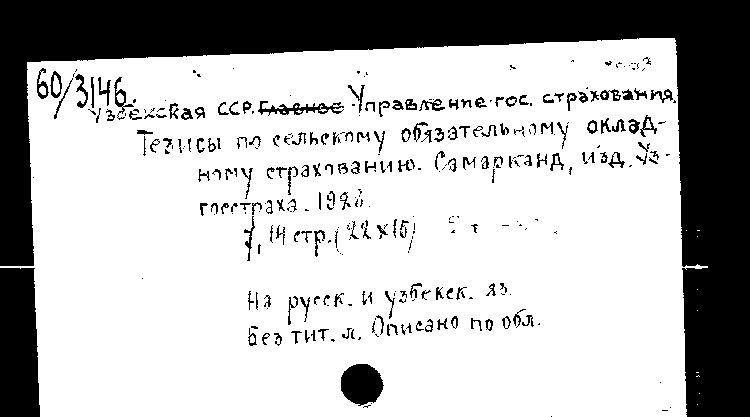 60/3146.
Узбекская ССР. Главное Управление гос. страхования.
Тезисы по сельскому обязательному оклад-
ному страхованию. Самарканд, изд. Уз-
госстраха. 1928.
7, 14 стр. (22×15)
На русск. и узбекск. яз.
Без тит. л. Описано по обл.